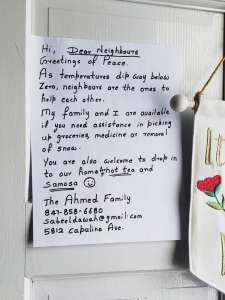 Hi, Dear Neighbours
Greetings of Peace.
As temperatures dip way below
Zero, neighbours are the ones to
help each other.
My family and I are available
if you need assistance in picking
up groceries, medicine or removal
of snow.
You are also welcome to drop in
to our home hot tea and
Samosa ☺
The Ahmed Family
847-858-6680
sabeeldawah@gmail.com
5812 Capulina Ave.